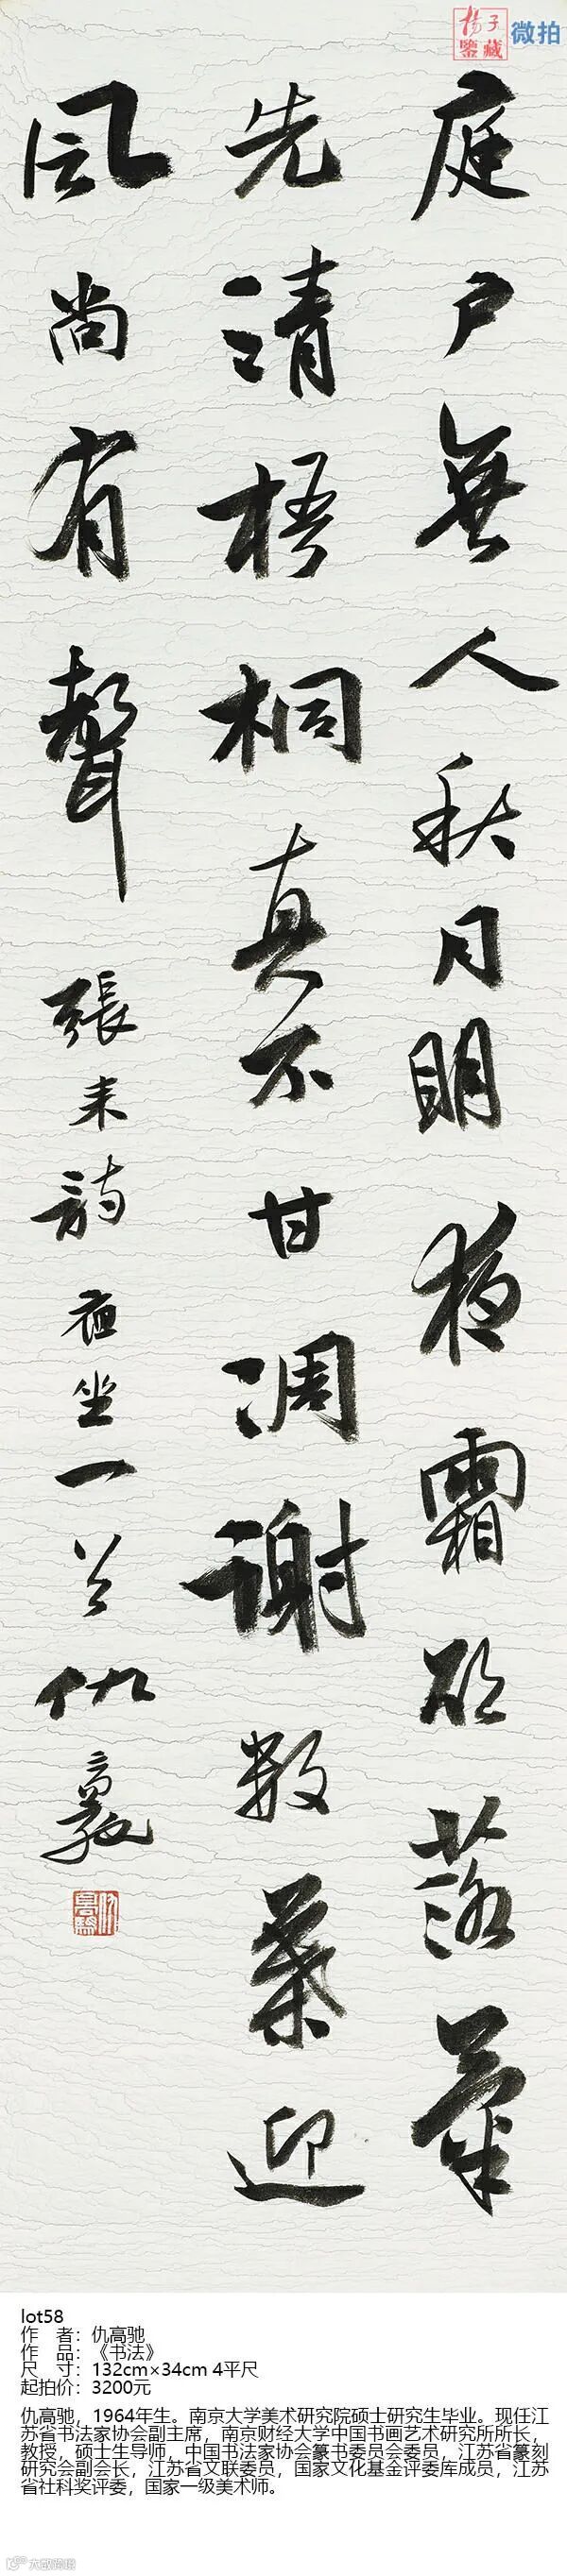 揚子鑒藏 微拍
庭戶無人秋月明夜霜欲落氣
先清梧桐真不甘凋謝數葉迎
風尚有聲 張耒詩夜坐一首 仇高馳
lot58
作 者：仇高驰
作 品：《书法》
尺 寸：132cm×34cm 4平尺
起拍价：3200元
仇高驰，1964年生。南京大学美术研究院硕士研究生毕业。现任江
苏省书法家协会副主席，南京财经大学中国书画艺术研究所所长，
教授，硕士生导师，中国书法家协会篆书委员会委员，江苏省篆刻
研究会副会长，江苏省文联委员，国家文化基金评委库成员，江苏
省社科奖评委，国家一级美术师。
大数跨境